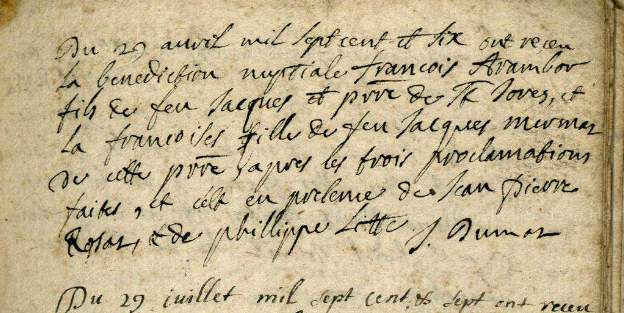 Du 29 avril mil sept cent et six ont receu
la benediction nuptiale francois Arambor
fils de feu Jacques et prre de St Jores, et
la francoises fille de feu Jacques mermaz
de cette prre, apres les trois proclamations
faites, et cest en presence de Jean pierre
Rosaz, & de phillippe Litte J. Dumaz
Du 29 juillet mil sept cent & sept ont receu